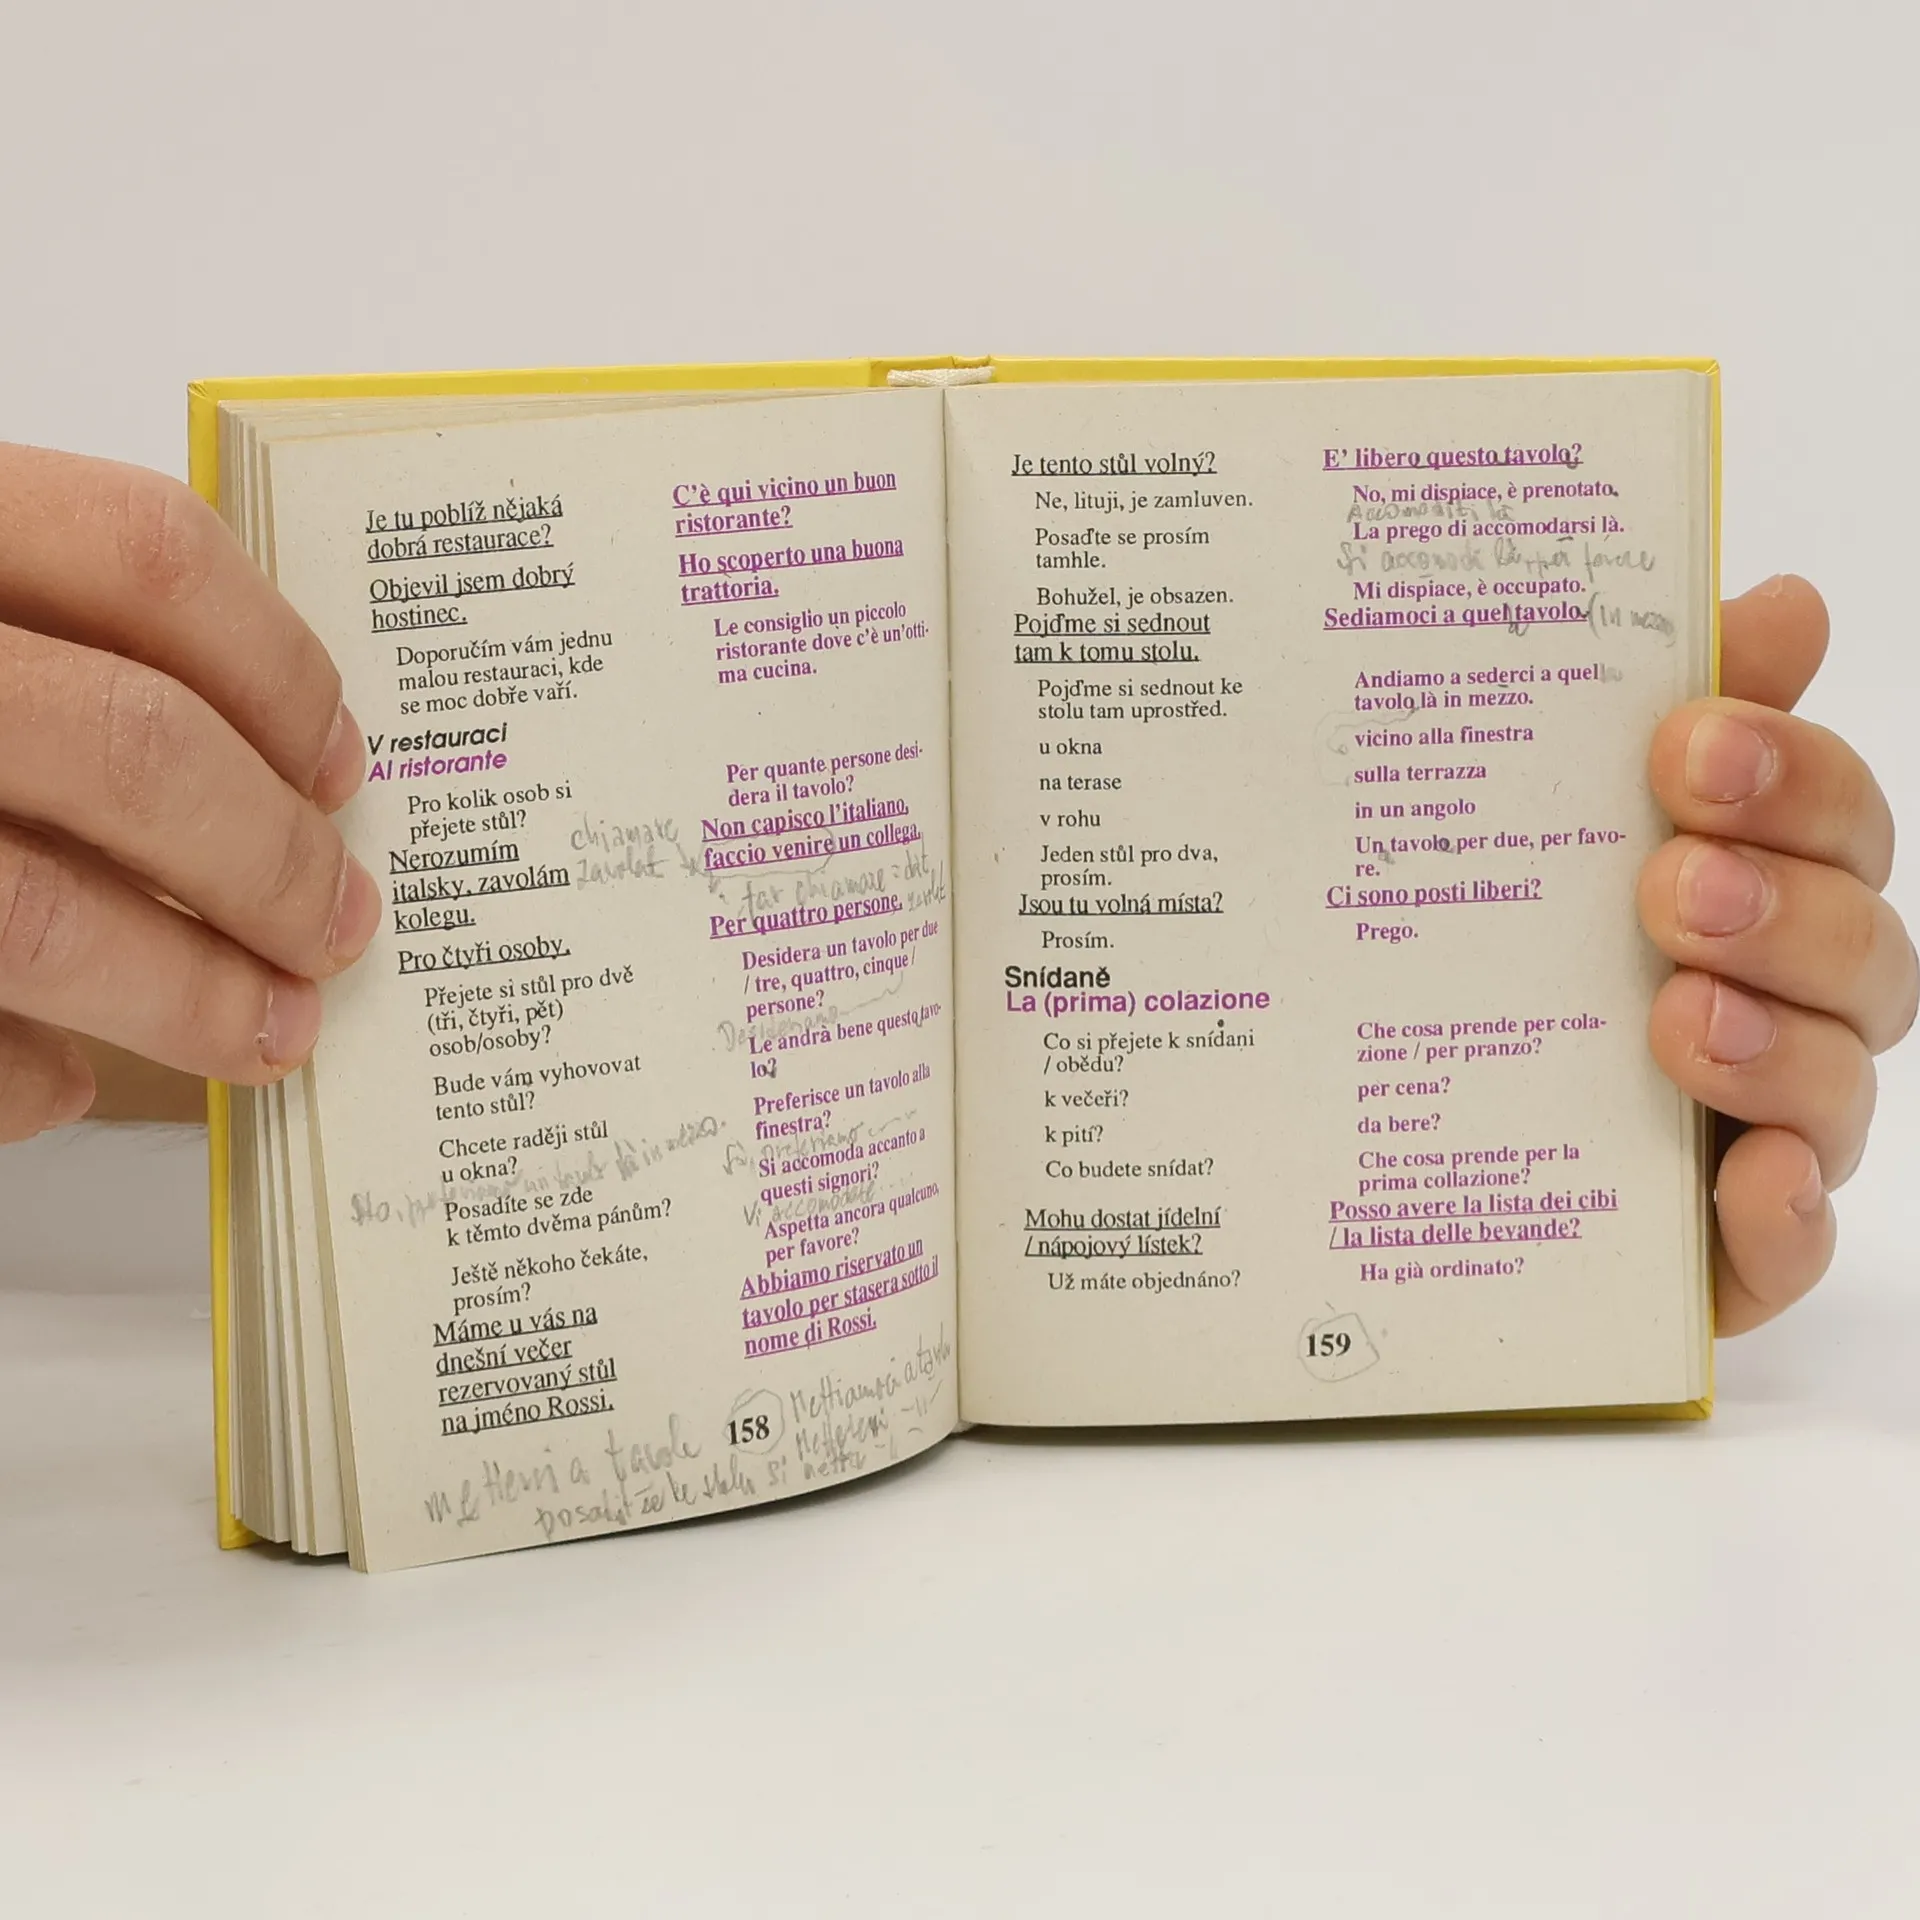 Je tu poblíž nějaká
dobrá restaurace?
Objevil jsem dobrý
hostinec.
Doporučím vám jednu
malou restauraci, kde
se moc dobře vaří.
V restauraci
Al ristorante
Pro kolik osob si
přejete stůl?
Nerozumím
italsky, zavolám
kolegu.
Pro čtyři osoby.
Přejete si stůl pro dvě
(tři, čtyři, pět)
osob/osoby?
Bude vám vyhovovat
tento stůl?
Chcete raději stůl
u okna?
Posadíte se zde
k těmto dvěma pánům?
Ještě někoho čekáte,
prosím?
Máme u vás na
dnešní večer
rezervovaný stůl
na jméno Rossi.
C'è qui vicino un buon
ristorante?
Ho scoperto una buona
trattoria.
Le consiglio un piccolo
ristorante dove c'è un'otti-
ma cucina.
Per quante persone desi-
dera il tavolo?
chiamare
zavolat
Non capisco l'italiano,
faccio venire un collega.
far chiamare = dát
Per quattro persone.
Desidera un tavolo per due
/ tre, quattro, cinque /
persone?
Desideriamo
Le andrà bene questo tavo-
lo?
Preferisce un tavolo alla
finestra?
Sì, preferiamo
là in mezzo.
Si accomoda accanto a
questi signori?
Vi accomodate
Aspetta ancora qualcuno,
per favore?
Abbiamo riservato un
tavolo per stasera sotto il
nome di Rossi.
Mettiamoci a
mettersi a tavola
posadit se ke stolu si
158
Je tento stůl volný?
Ne, lituji, je zamluven.
Posaďte se prosím
tamhle.
Bohužel, je obsazen.
Pojďme si sednout
tam k tomu stolu.
Pojďme si sednout ke
stolu tam uprostřed.
u okna
na terase
v rohu
Jeden stůl pro dva,
prosím.
Jsou tu volná místa?
Prosím.
Snídaně
La (prima) colazione
Co si přejete k snídani
/ obědu?
k večeři?
k pití?
Co budete snídat?
Mohu dostat jídelní
/ nápojový lístek?
Už máte objednáno?
E' libero questo tavolo?
No, mi dispiace, è prenotato.
Accomodati là
La prego di accomodarsi là.
Si accomodi là, per favore
Mi dispiace, è occupato.
Sediamoci a quel tavolo. (in mezzo)
Andiamo a sederci a quel
tavolo là in mezzo.
vicino alla finestra
sulla terrazza
in un angolo
Un tavolo per due, per favo-
re.
Ci sono posti liberi?
Prego.
Che cosa prende per cola-
zione / per pranzo?
per cena?
da bere?
Che cosa prende per la
prima collazione?
Posso avere la lista dei cibi
/ la lista delle bevande?
Ha già ordinato?
159